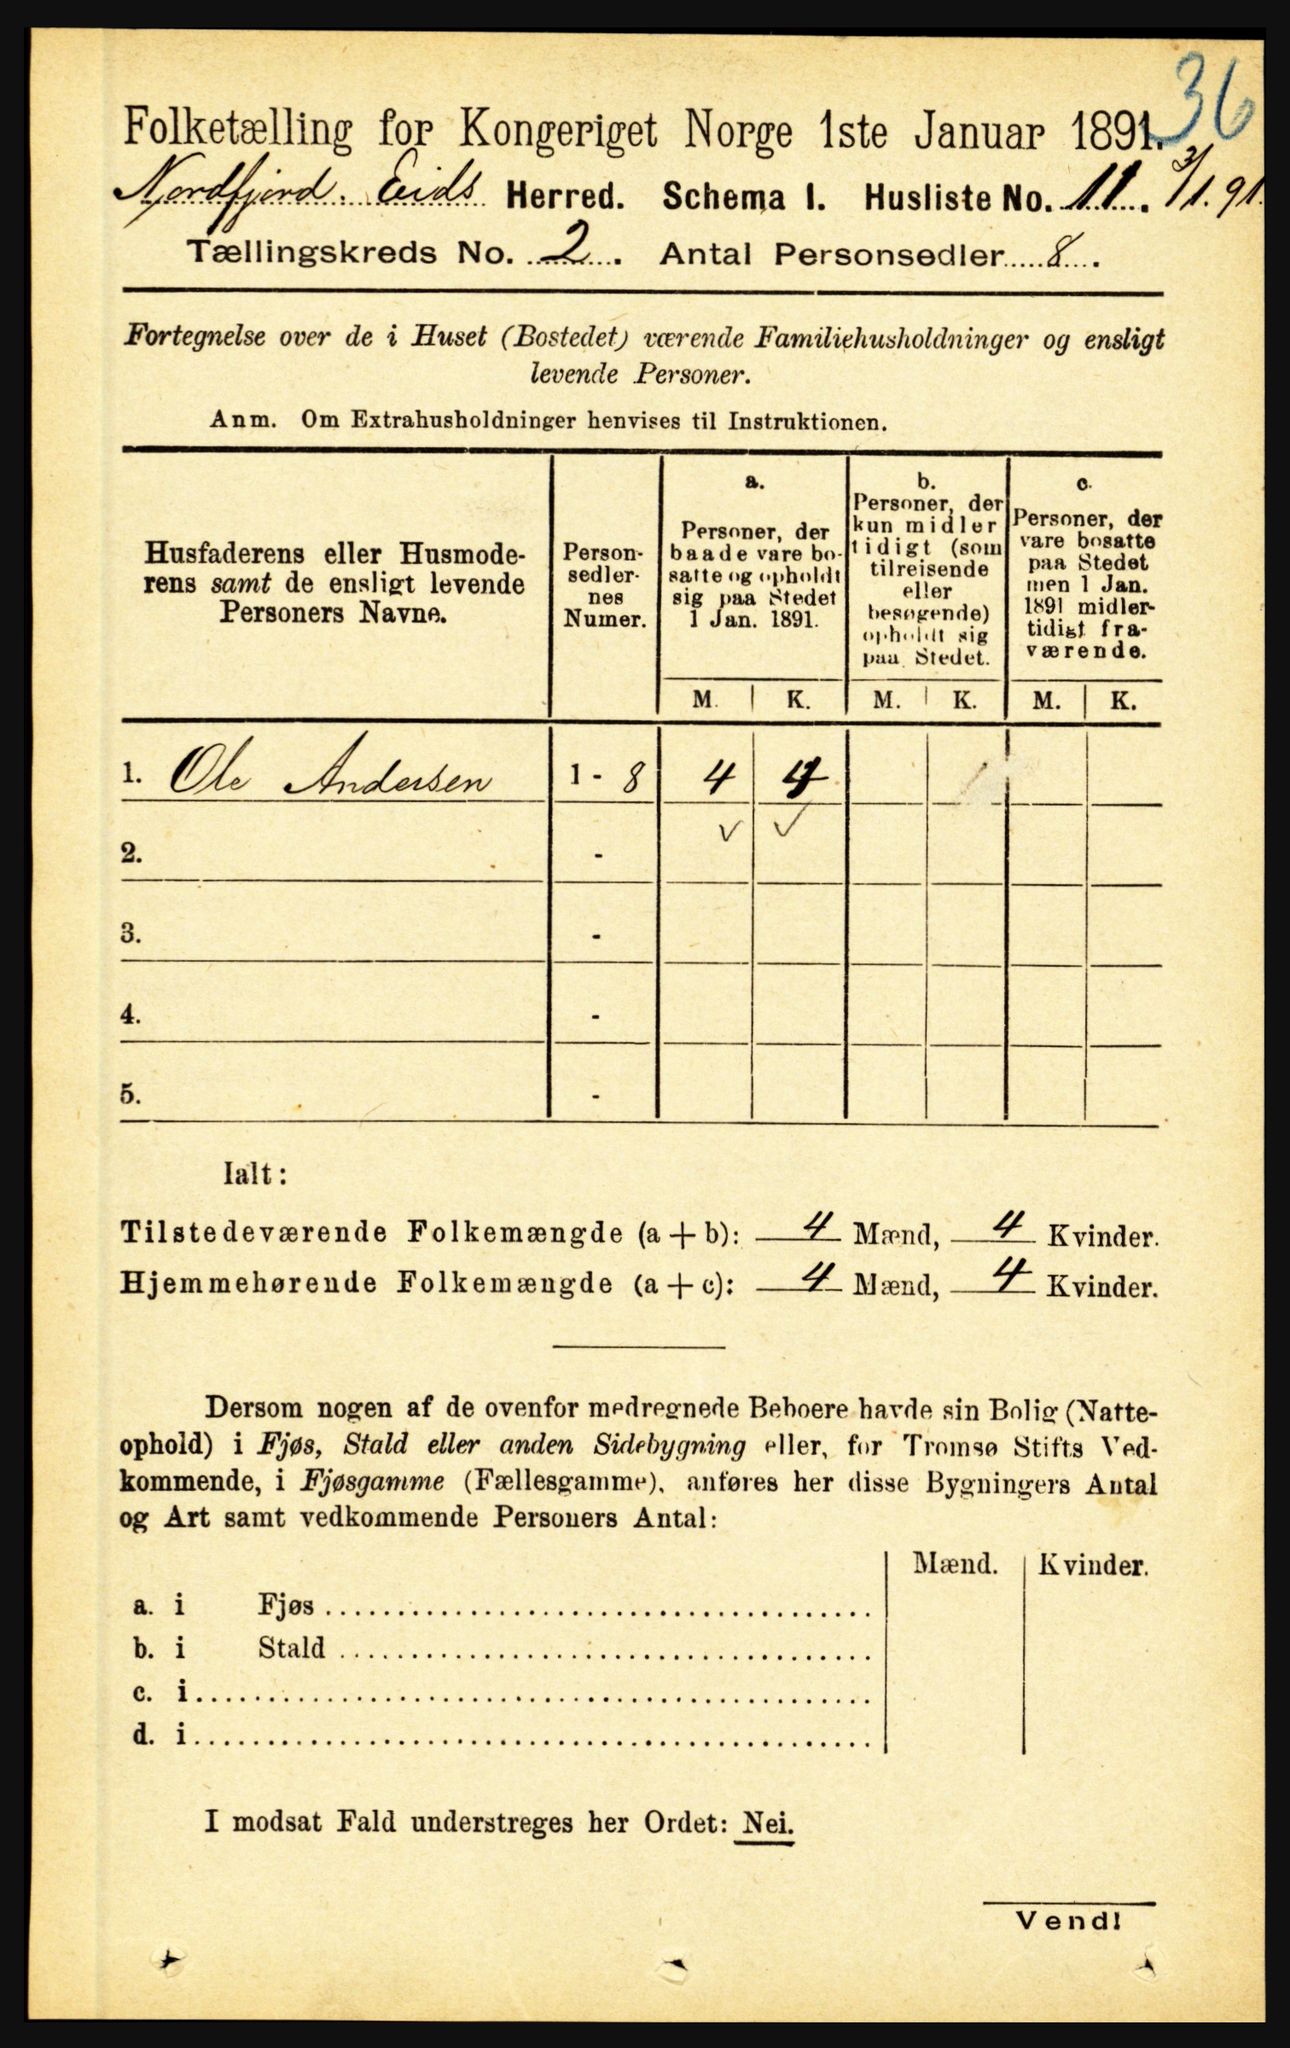 36
Folketælling for Kongeriget Norge 1ste Januar 1891.
Nordfjord. Eids Herred. Schema I. Husliste No. 11. 3/1. 91.
Tællingskreds No. 2. Antal Personsedler 8.
Fortegnelse over de i Huset (Bostedet) værende Familiehusholdninger og ensligt
levende Personer.
Anm. Om Extrahusholdninger henvises til Instruktionen.
Husfaderens eller Husmode-
rens samt de ensligt levende
Personers Navne.
Person-
sedler-
nes
Numer.
a.
Personer, der
baade vare bo-
satte og opholdt
sig paa Stedet
1 Jan. 1891.
b.
Personer, der
kun midler
tidigt (som
tilreisende
eller
besøgende)
opholdt sig
paa Stedet.
c.
Personer, der
vare bosatte
paa Stedet
men 1 Jan.
1891 midler-
tidigt fra-
værende.
M. K. M. K. M. K.
1. Ole Andersen 1 - 8 4 4
2. - ✓ ✓
3. -
4. -
5. -
Ialt:
Tilstedeværende Folkemængde (a + b): 4 Mænd, 4 Kvinder.
Hjemmehørende Folkemængde (a + c): 4 Mænd, 4 Kvinder.
Dersom nogen af de ovenfor medregnede Beboere havde sin Bolig (Natte-
ophold) i Fjøs, Stald eller anden Sidebygning eller, for Tromsø Stifts Ved-
kommende, i Fjøsgamme (Fællesgamme), anføres her disse Bygningers Antal
og Art samt vedkommende Personers Antal:
Mænd. Kvinder.
a. i Fjøs
b. i Stald
c. i
d. i
I modsat Fald understreges her Ordet: Nei.
Vend!